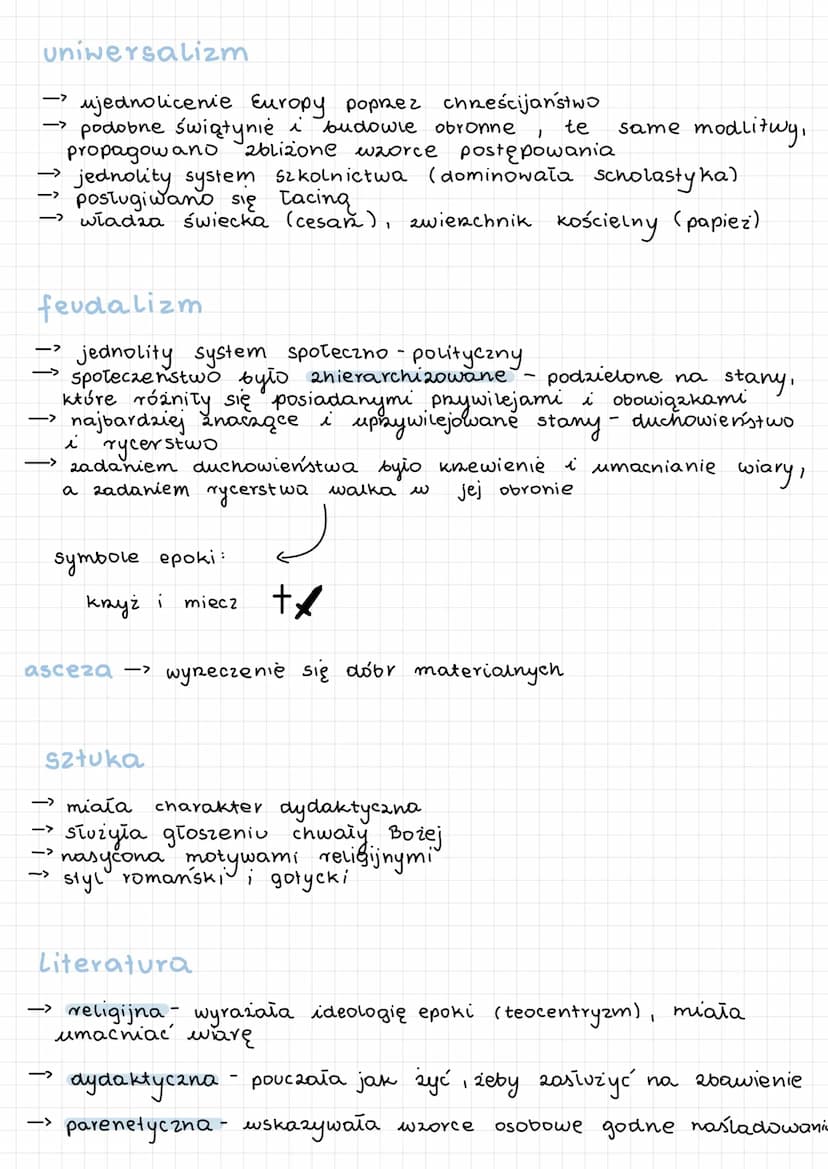 uniwersalizm
→ ujednolicenie Europy poprzez chrześcijaństwo
→ podobne świątynie i budowle obronne , te same modlitwy,
propagowano zbliżone wzorce postępowania
→ jednolity system szkolnictwa (dominowała scholastyka)
→ posługiwano się łaciną
→ władza świecka (cesarz), zwierzchnik kościelny (papież)
feudalizm
→ jednolity system społeczno - polityczny
→ społeczeństwo było zhierarchizowane - podzielone na stany,
które różniły się posiadanymi przywilejami i obowiązkami
→ najbardziej znaczące i uprzywilejowane stany - duchowieństwo
i rycerstwo
→ zadaniem duchowieństwa było krzewienie i umacnianie wiary,
a zadaniem rycerstwa walka w jej obronie
symbole epoki:
krzyż i miecz
asceza → wyrzeczenie się dóbr materialnych
sztuka
→ miała charakter dydaktyczna
→ służyła głoszeniu chwały Bożej
→ nasycona motywami religijnymi
→ styl romański i gotycki
literatura
→ religijna - wyrażała ideologię epoki (teocentryzm), miała
umacniać wiarę
→ dydaktyczna - pouczała jak żyć, żeby zasłużyć na zbawienie
→ parenetyczna - wskazywała wzorce osobowe godne naśladowani